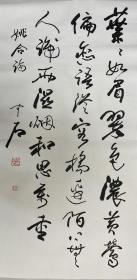 葉々如眉翠色濃黄鶯
偏戀語從容橋邊陌上無
人識雨濕烟和思萬重
姚合詩